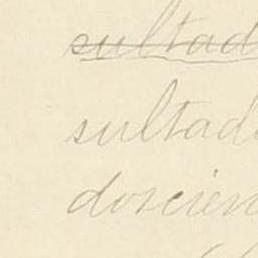 sultad
sultad
doscien